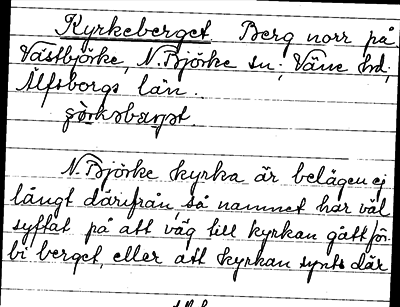 Kyrkeberget. Berg norr på
Västbjörke, N. Björke sn; Väne hd;
Älfsborgs län.
N. Björke kyrka är belägen ej
långt därifrån, så namnet har väl
syftat på att väg till kyrkan gått för-
bi berget, eller att kyrkan synts där